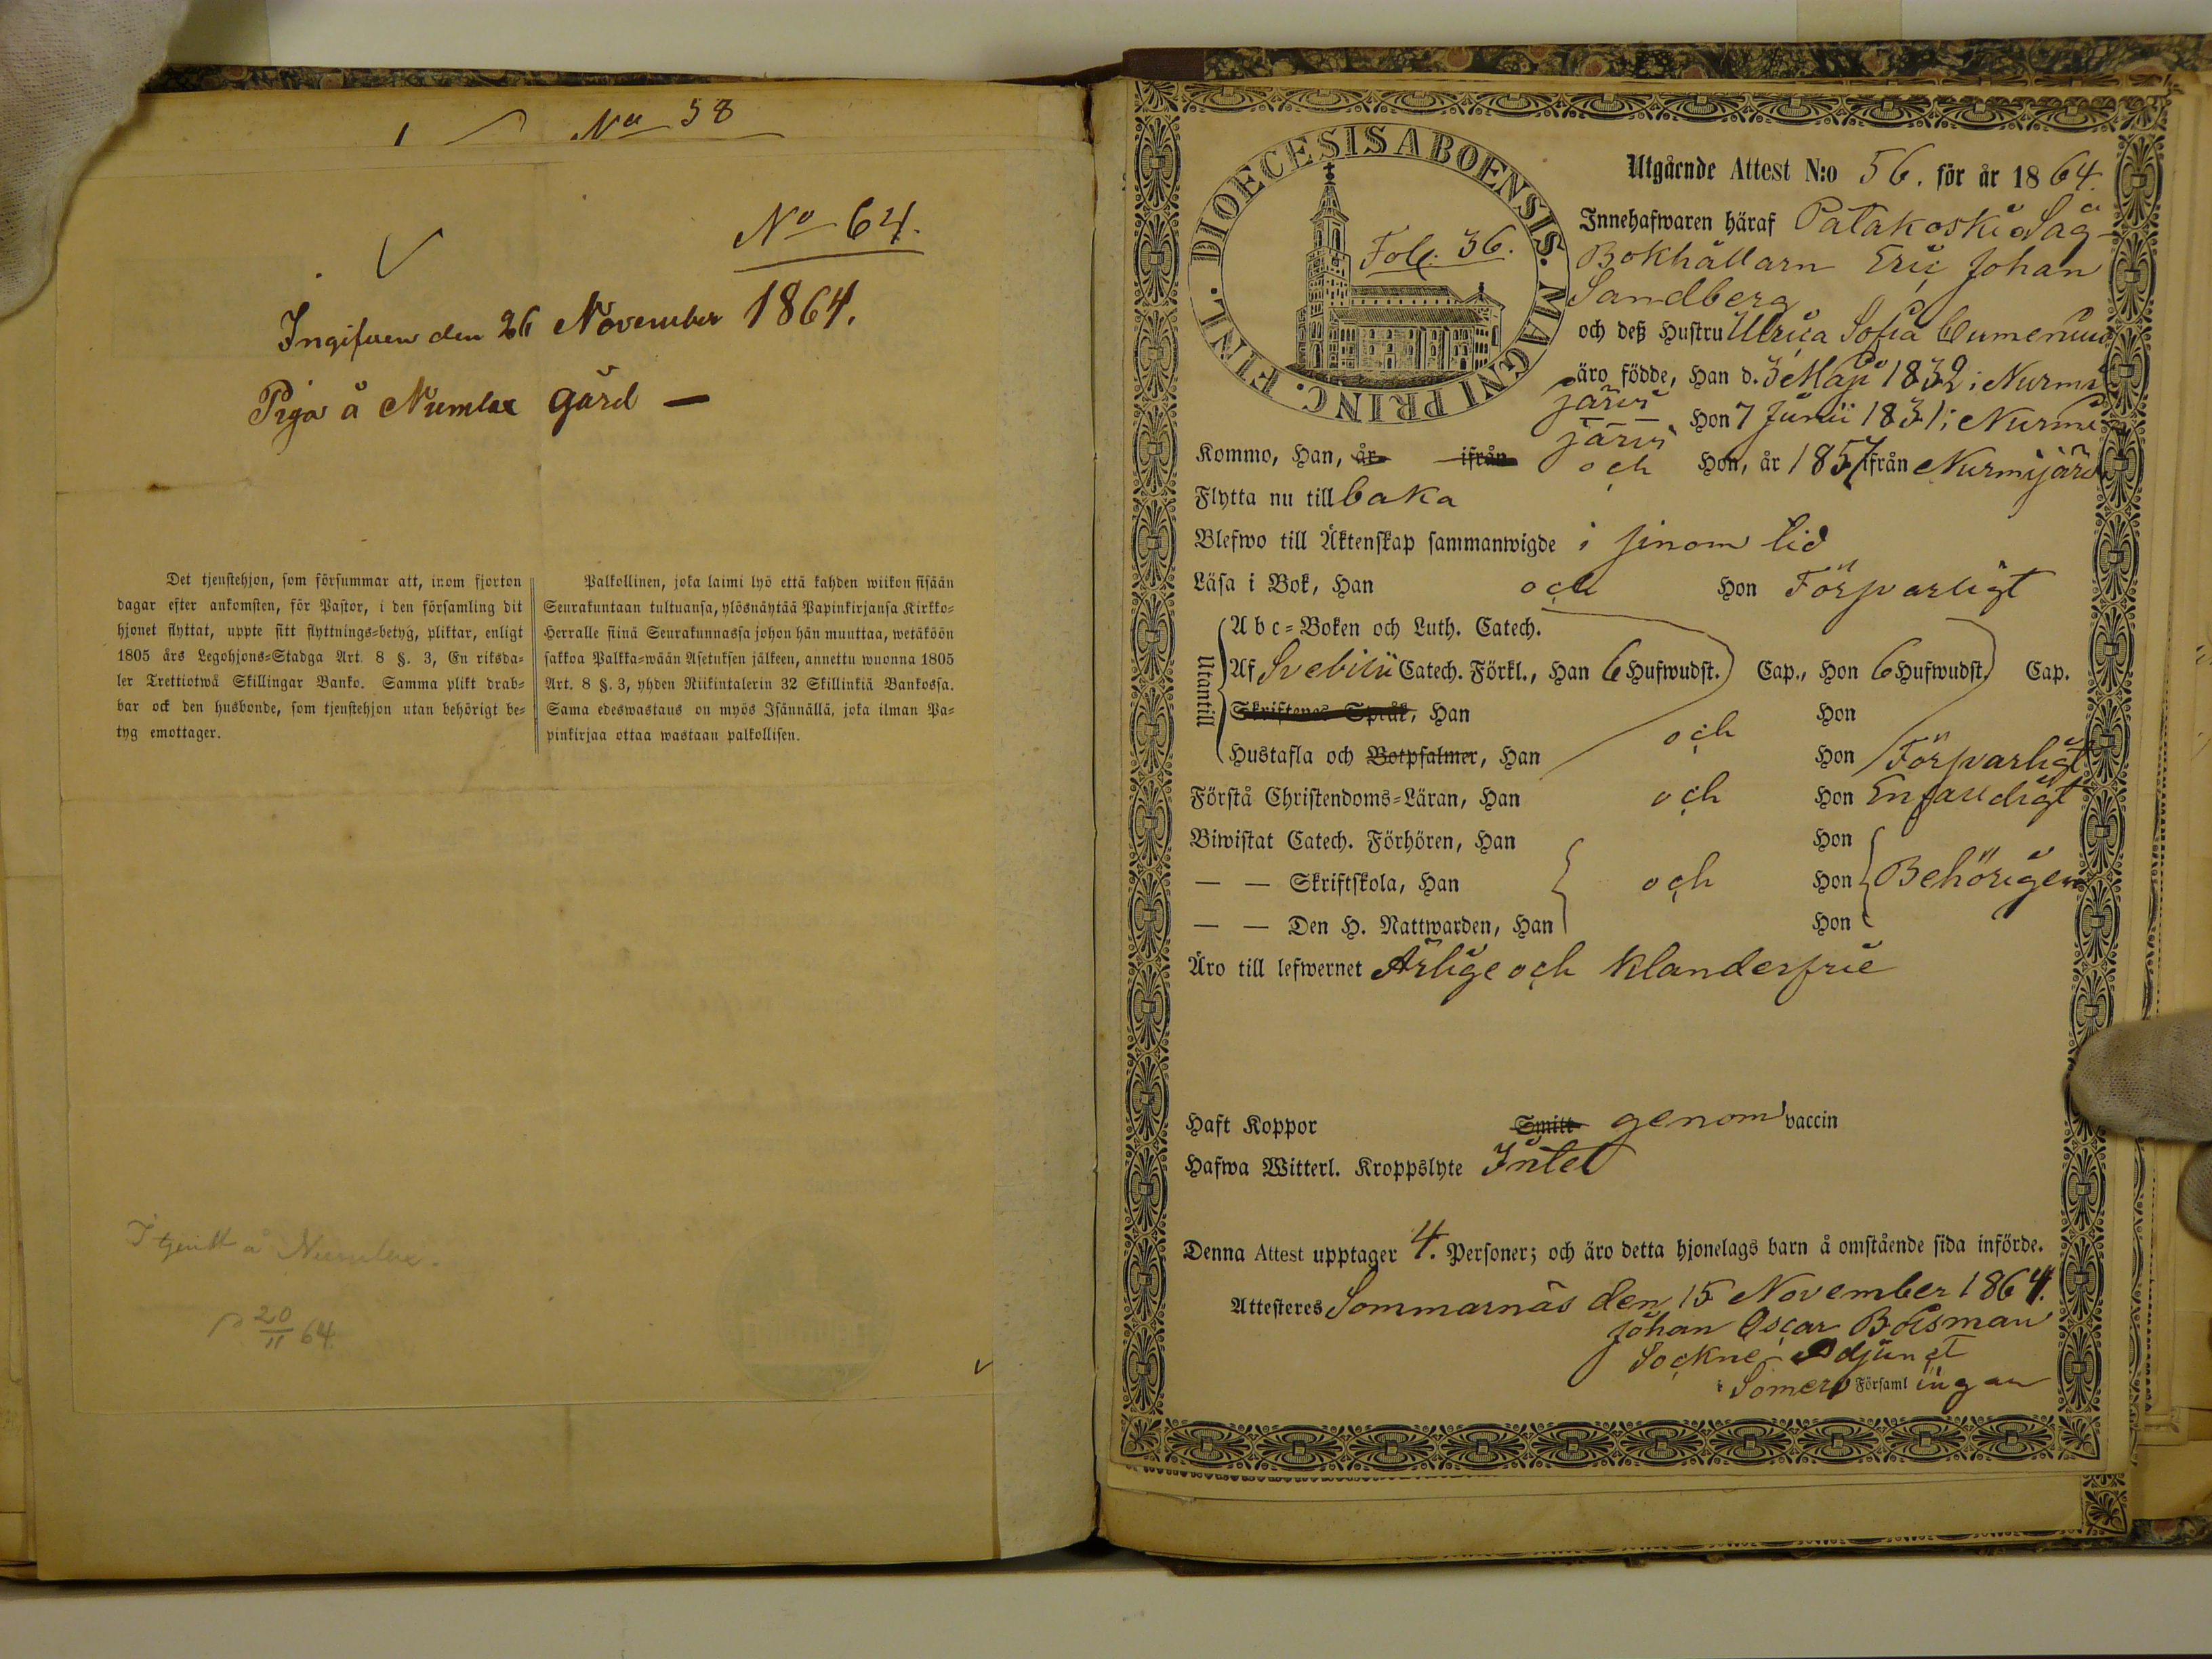 No 58
No 64.
Ingifven den 26 November 1864.
Piga å Numlax gård —
Det tjenstehjon, som försummar att, inom fjorton
dagar efter ankomsten, för Pastor, i den församling dit
hjonet flyttat, uppte sitt flyttnings-betyg, pliktar, enligt
1805 års Legohjons-Stadga Art. 8 §. 3, En riksda-
ler Trettiotwå Skillingar Banko. Samma plikt drab-
bar ock den husbonde, som tjenstehjon utan behörigt be-
tyg emottager.
Palkollinen, joka laimi lyö että kahden wiikon sisään
Seurakuntaan tultuansa, ylösnäytää Papinkirjansa Kirkko-
Herralle siinä Seurakunnassa johon hän muuttaa, wetäköön
sakkoa Palkka-wään Asetuksen jälkeen, annettu wuonna 1805
Art. 8 §. 3, yhden Riikintalerin 32 Skillinkiä Bankossa.
Sama edeswastaus on myös Isännällä, joka ilman Pa-
pinkirjaa ottaa wastaan palkollisen.
I tjenst å Numlax.
20/11 64.
DIOECESIS ABOENSIS. MAGNI PRINC. FINL.
Fol. 36.
Utgående Attest N:o 56. för år 1864.
Innehafwaren häraf Patakoski Såg-
Bokhållarn Eric Johan
Sandberg
och deß Hustru Ulrica Sofia
äro födde, Han d. 3 Maji 1832 i Nurmi
järvi Hon 7 Junii 1831 i Nurmi
järvi
Kommo, Han, år ifrån och Hon, år 1857 ifrån Nurmijärvi
Flytta nu till baka
Blefwo till Äktenskap sammanwigde i sinom tid
Läsa i Bok, Han och Hon Försvarligt
Utantill
Abc-Boken och Luth. Catech.
Af Svebilii Catech. Förkl., Han 6 Hufwudst. Cap., Hon 6 Hufwudst. Cap.
Skriftenes Språk, Han Hon
och
Hustafla och Botpsalmer, Han Hon Försvarligt
Förstå Christendoms-Läran, Han och Hon Enfaldigt
Biwistat Catech. Förhören, Han Hon
— — Skriftskola, Han och Hon Behörigen
— — Den H. Nattwarden, Han Hon
Äro till lefwernet Ärlige och klanderfrie
Haft Koppor Smitt genom vaccin
Hafwa Witterl. Kroppslyte Intet
Denna Attest upptager 4. Personer; och äro detta hjonelags barn å omstående sida införde.
Attesteres Sommarnäs den 15 November 1864.
Johan Oscar Boisman
Sockne Adjunct
i Somero Församlingan